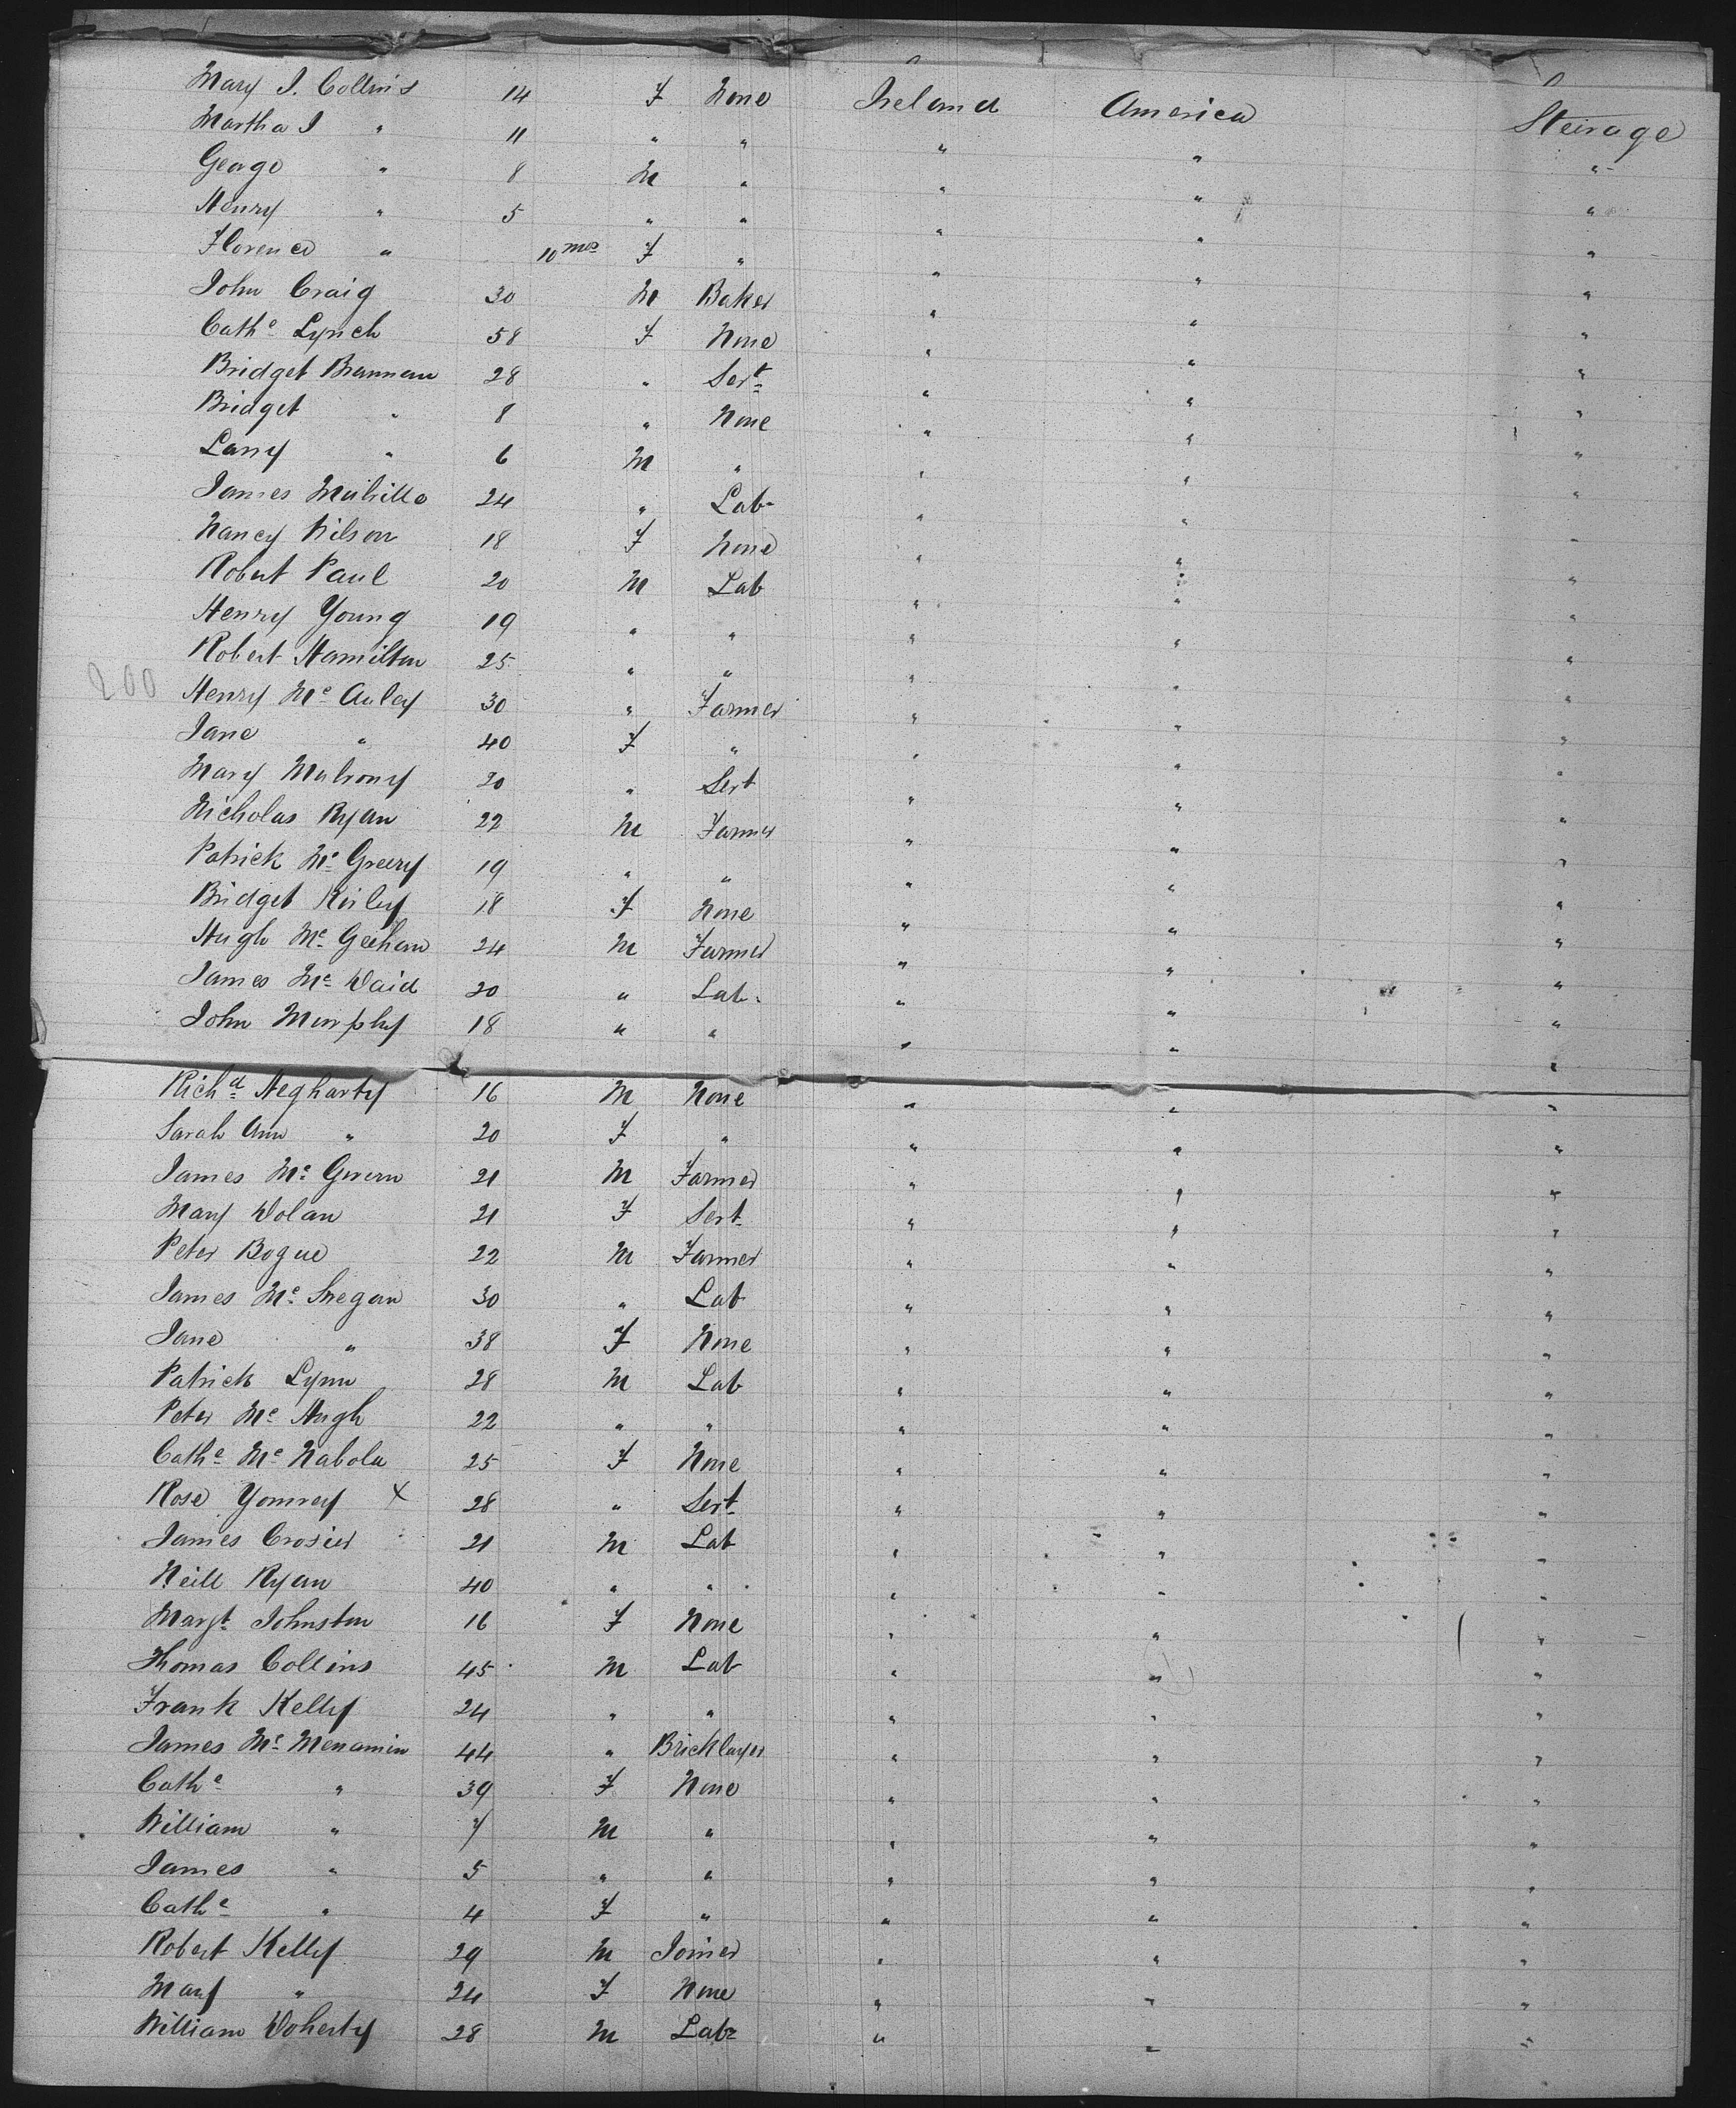 Mary J. Collins 14 F None Ireland America Steirage
Martha J " 11 " " " " "
George " 8 M " " " "
Henry " 5 " " " " "
Florence " 10 mos F " " " "
John Craig 30 M Baker " " "
Cathe Lynch 58 F None " " "
Bridget Brannan 28 " Sert " " "
Bridget " 8 " None " " "
Larry " 6 M " " " "
James 24 " Lab " " "
Nancy Wilson 18 F None " " "
Robert Paul 20 M Lab " " "
Henry Young 19 " " " " "
Robert Hamilton 25 " " " " "
200 Henry Mc Auley 30 " Farmer " " "
Jane " 40 F " " " "
Mary Mulrony 20 " Sert " " "
Nicholas Ryan 22 M Farmer " " "
Patrick Mc Greery 19 " " " " "
Bridget Kirley 18 F None " " "
Hugh Mc Geehan 24 M Farmer " " "
James Mc Daid 20 " Lab. " " "
John Murphy 18 " " " " "
Richd Hegharty 16 M None " " "
Sarah Ann " 20 F " " " "
James Mc Gwern 21 M Farmer " " "
Mary Dolan 21 F Sert " " "
Peter Bogue 22 M Farmer " " "
James Mc 30 " Lab " " "
Jane " 38 F None " " "
Patrick Lynn 28 M Lab " " "
Peter Mc Hugh 22 " " " " "
Cathe Mc Nabola 25 F None " " "
Rose x 28 " Sert " " "
James Crosier 21 M Lab " " "
Neill Ryan 40 " " " " "
Margt Johnston 16 F None " " "
Thomas Collins 45 M Lab " " "
Frank Kelly 24 " " " " "
James Mc Menamin 44 " Bricklayer " " "
Cathe " 39 F None " " "
William " 7 M " " " "
James " 5 " " " " "
Cathe " 4 F " " " "
Robert Kelly 29 M Joiner " " "
Mary " 24 F None " " "
William Doherty 28 M Lab " " "